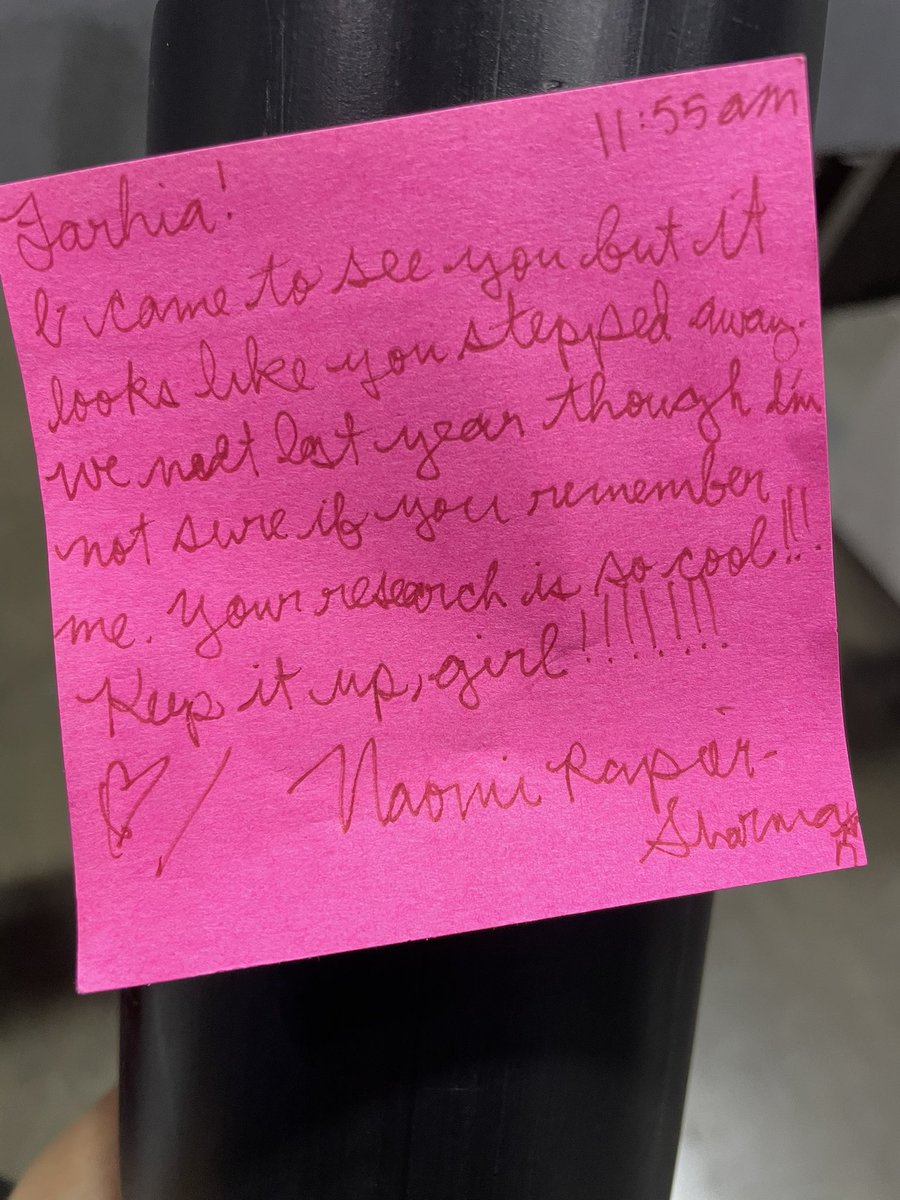 11:55am
Farhia!
I came to see you but it
looks like you stepped away.
we met last year though I'm
not sure if you remember
me. Your research is so cool!!!
Keep it up, girl!!!!!!!
Naomi Rapier-
Sharma